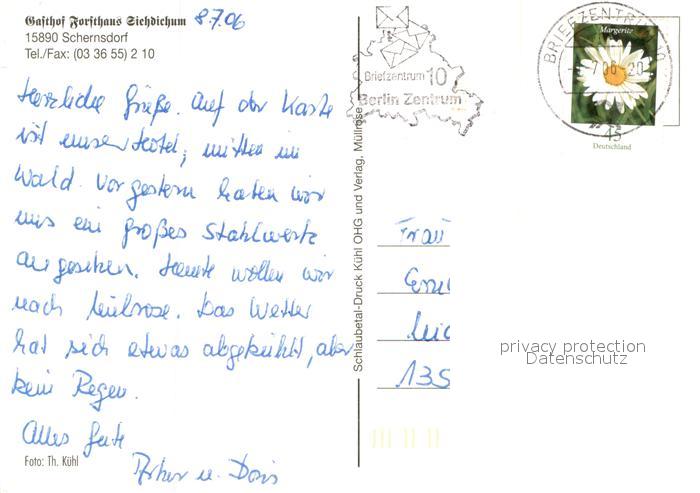 Gasthof Forsthaus Siehdichum 8.7.06
15890 Schernsdorf
Tel./Fax: (03 36 55) 2 10
Herzliche Grüße. Auf der Karte
ist unser Hotel, mitten im
Wald. Vorgestern haben wir
uns ein großes Stahlwerk
angesehen. Heute wollen wir
nach Müllrose. Das Wetter
hat sich etwas abgekühlt, aber
kein Regen.
Alles Gute
u. Doris
Foto: Th. Kühl
Schlaubetal-Druck Kühl OHG und Verlag, Müllrose
Briefzentrum 10
Berlin Zentrum
BRIEFZENTRUM 10
Margerite
45
Deutschland
Frau
135
privacy protection
Datenschutz